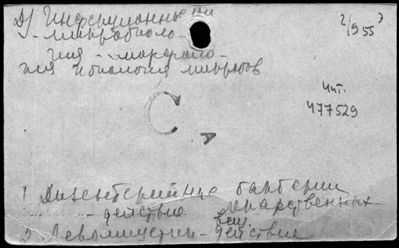 Д) Инфекционные б-ни
- микробиоло-
гия - морфоло-
гия и биология микробов
2/955
Чит.
477529
С
А
1 Дизентерийные бактерии
- действие лекарственных
вещ.
2 Левомицетин - действие